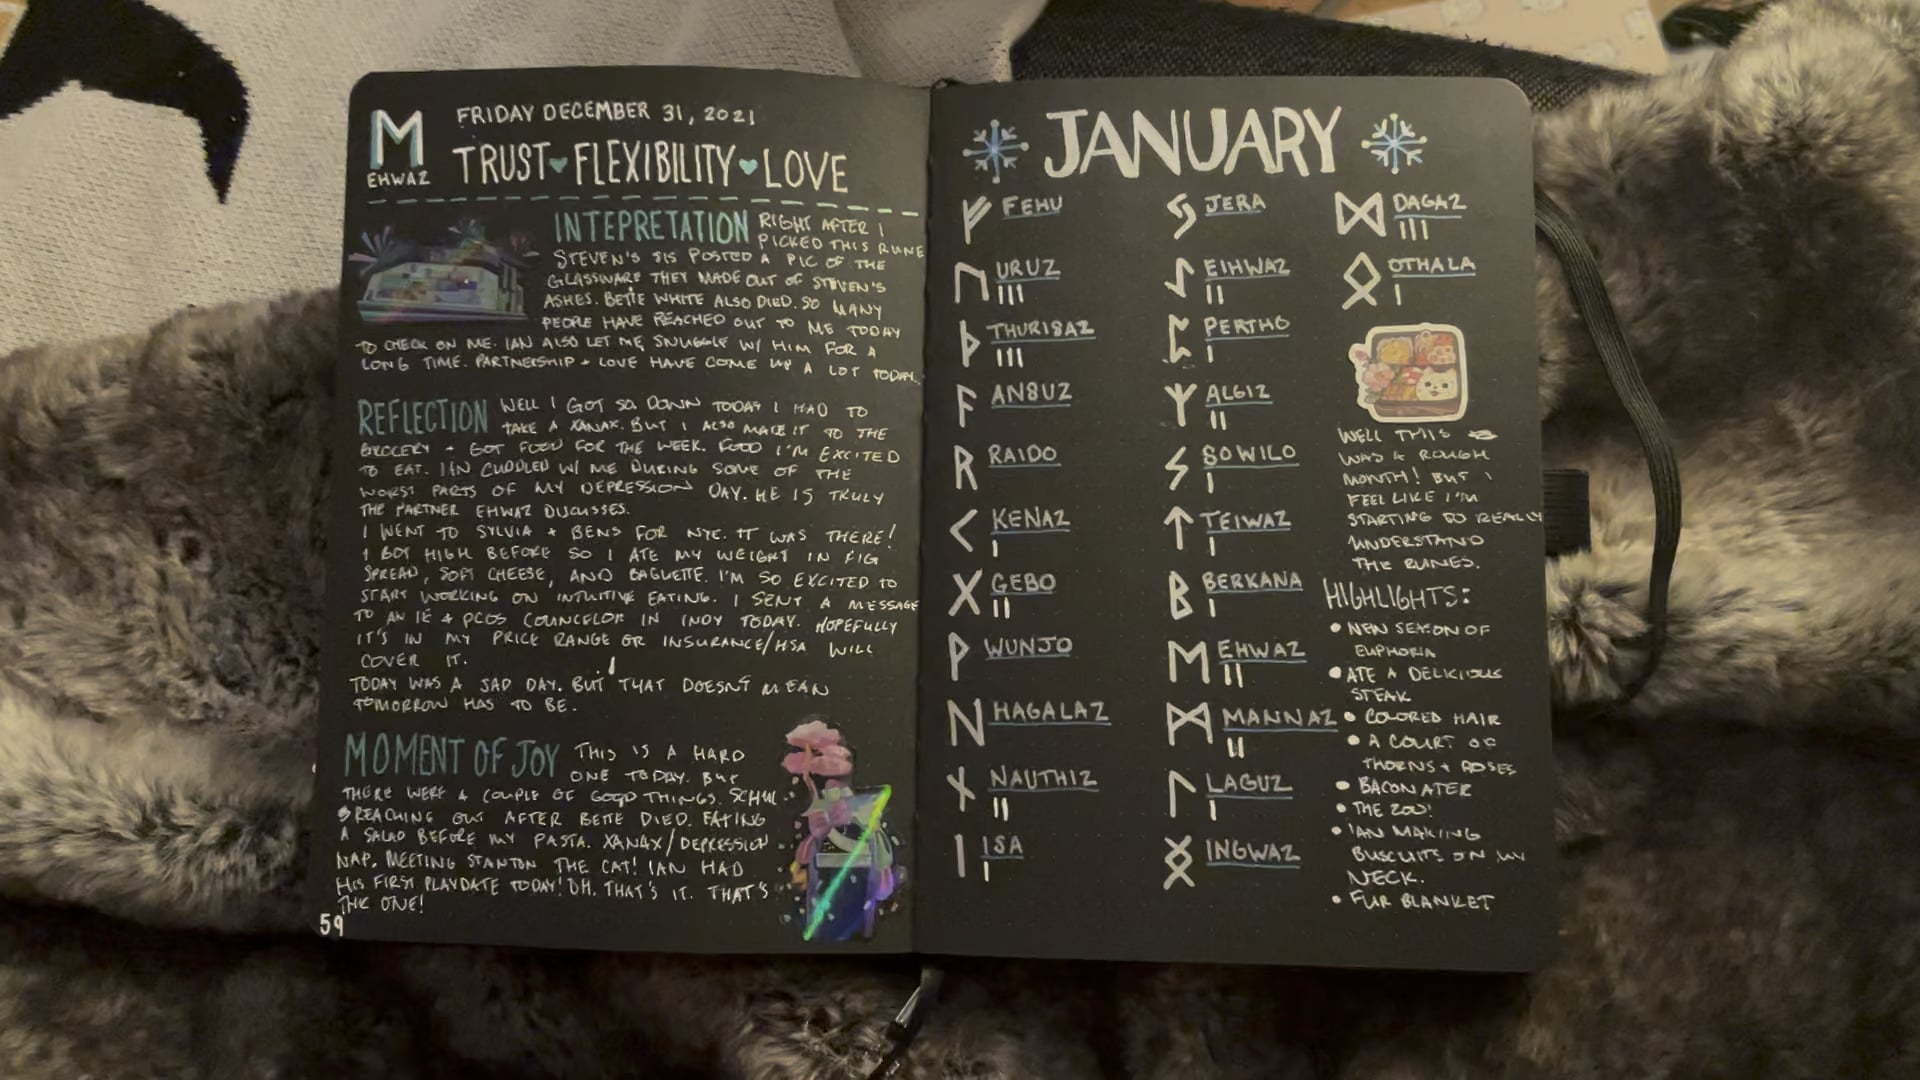 M
EHWAZ
FRIDAY DECEMBER 31, 2021
TRUST FLEXIBILITY LOVE
INTEPRETATION RIGHT AFTER I
PICKED THIS RUNE
STEVEN'S SIS POSTED A PIC OF THE
GLASSWARE THEY MADE OUT OF STEVEN'S
ASHES. BETTE WHITE ALSO DIED. SO MANY
PEOPLE HAVE REACHED OUT TO ME TODAY
TO CHECK ON ME. IAN ALSO LET ME SNUGGLE W/ HIM FOR A
LONG TIME. PARTNERSHIP + LOVE HAVE COME UP A LOT TODAY.
REFLECTION WELL I GOT SO DOWN TODAY I HAD TO
TAKE A XANAX. BUT I ALSO MADE IT TO THE
GROCERY + GOT FOOD FOR THE WEEK. FOOD I'M EXCITED
TO EAT. IAN CUDDLED W/ ME DURING SOME OF THE
WORST PARTS OF MY DEPRESSION DAY. HE IS TRULY
THE PARTNER EHWAZ DISCUSSES.
I WENT TO SYLVIA + BENS FOR NYE. IT WAS THERE!
I GOT HIGH BEFORE SO I ATE MY WEIGHT IN FIG
SPREAD, SOFT CHEESE, AND BAGUETTE. I'M SO EXCITED TO
START WORKING ON INTUITIVE EATING. I SENT A MESSAGE
TO AN IE + PCOS COUNCELOR IN INDY TODAY. HOPEFULLY
IT'S IN MY PRICE RANGE OR INSURANCE/HSA WILL
COVER IT.
TODAY WAS A SAD DAY. BUT THAT DOESN'T MEAN
TOMORROW HAS TO BE.
MOMENT OF JOY THIS IS A HARD
ONE TODAY. BUT
THERE WERE A COUPLE OF GOOD THINGS.
REACHING OUT AFTER BETTE DIED. EATING
A SALAD BEFORE MY PASTA. XANAX/DEPRESSION
NAP. MEETING STANTON THE CAT! IAN HAD
HIS FIRST PLAYDATE TODAY! OH. THAT'S IT. THAT'S
THE ONE!
59
JANUARY
ᚠ FEHU
ᚢ URUZ
III
ᚦ THURISAZ
III
ᚨ ANSUZ
ᚱ RAIDO
ᚲ KENAZ
I
ᚷ GEBO
II
ᚹ WUNJO
N HAGALAZ
ᚾ NAUTHIZ
II
ᛁ ISA
I
ᛃ JERA
ᛇ EIHWAZ
II
ᛈ PERTHO
I
ᛉ ALGIZ
II
ᛊ SOWILO
I
ᛏ TEIWAZ
I
ᛒ BERKANA
I
ᛖ EHWAZ
II
ᛗ MANNAZ
II
ᛚ LAGUZ
I
ᛝ INGWAZ
ᛞ DAGAZ
III
ᛟ OTHALA
I
WELL THIS
WAS A ROUGH
MONTH! BUT I
FEEL LIKE I'M
STARTING TO REALLY
UNDERSTAND
THE RUNES.
HIGHLIGHTS:
• NEW SEASON OF
EUPHORIA
• ATE A DELICIOUS
STEAK
• COLORED HAIR
• A COURT OF
THORNS + ROSES
• BACONATER
• THE ZOO!
• IAN MAKING
BUSCUITS ON MY
NECK.
• FUR BLANKET